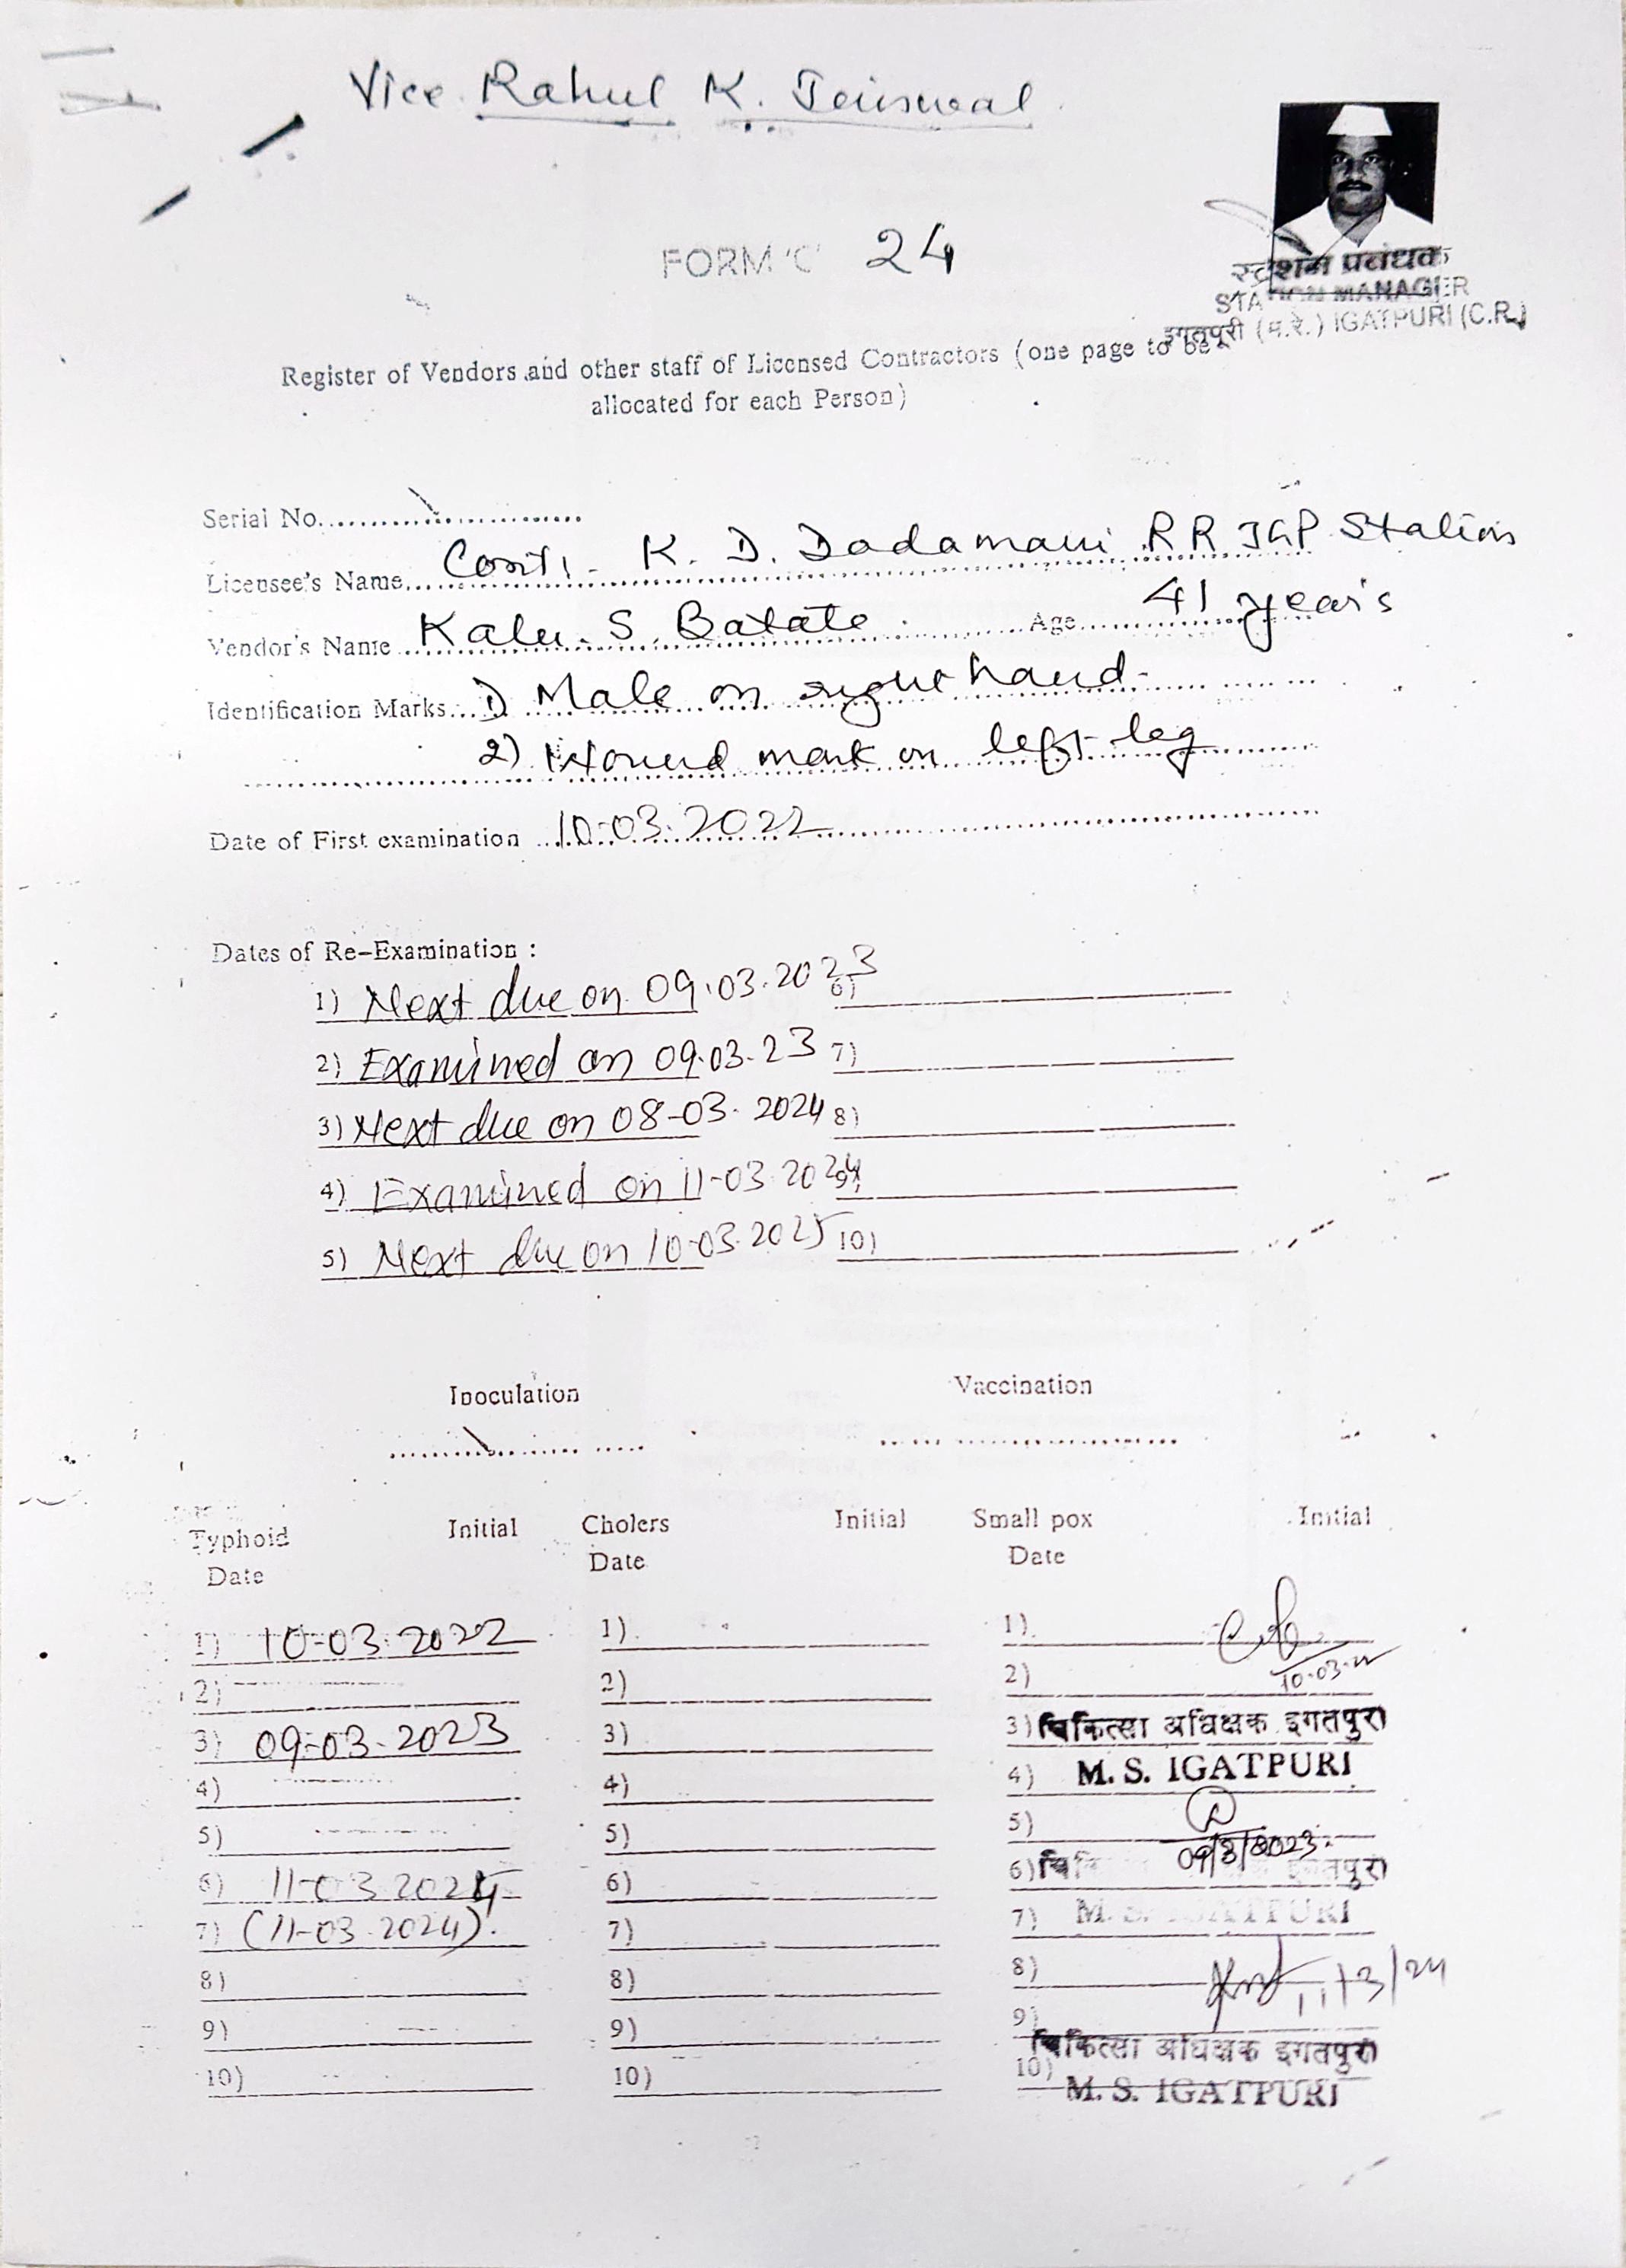 Vice Rahul K. Jeiswal
FORM 'C' 24
स्टेशन प्रबंधक
STATION MANAGER
इगतपूरी (म.रे.) IGATPURI (C.R.)
Register of Vendors and other staff of Licensed Contractors (one page to be
allocated for each Person)
Serial No.
Licensee's Name Cont:- K. D. Dadamani RR IGP Station
Vendor's Name Kalu. S. Batate Age 41 year's
Identification Marks 1) Male on right hand-
2) Wound mark on left leg
Date of First examination 10-03-2022
Dates of Re-Examination :
1) Next due on 09.03.2023 6)
2) Examined on 09.03.23 7)
3) Next due on 08-03-2024 8)
4) Examined on 11-03-2024 9)
5) Next due on 10-03-2025 10)
Inoculation Vaccination
Typhoid Initial Cholers Initial Small pox Initial
Date Date Date
1) 10-03-2022 1) 1)
10-03-22
2) 2) 2)
3) 09-03-2023 3) 3) चिकित्सा अधिक्षक इगतपुरी
4) 4) 4) M. S. IGATPURI
5) 5) 5)
09/3/2023
6) 11-03-2024 6) 6) चिकित्सा अधिक्षक इगतपुरी
7) (11-03-2024). 7) 7) M. S. IGATPURI
8) 8) 8) 11/3/24
9) 9) 9)
चिकित्सा अधिक्षक इगतपुरी
10) 10) 10) M. S. IGATPURI